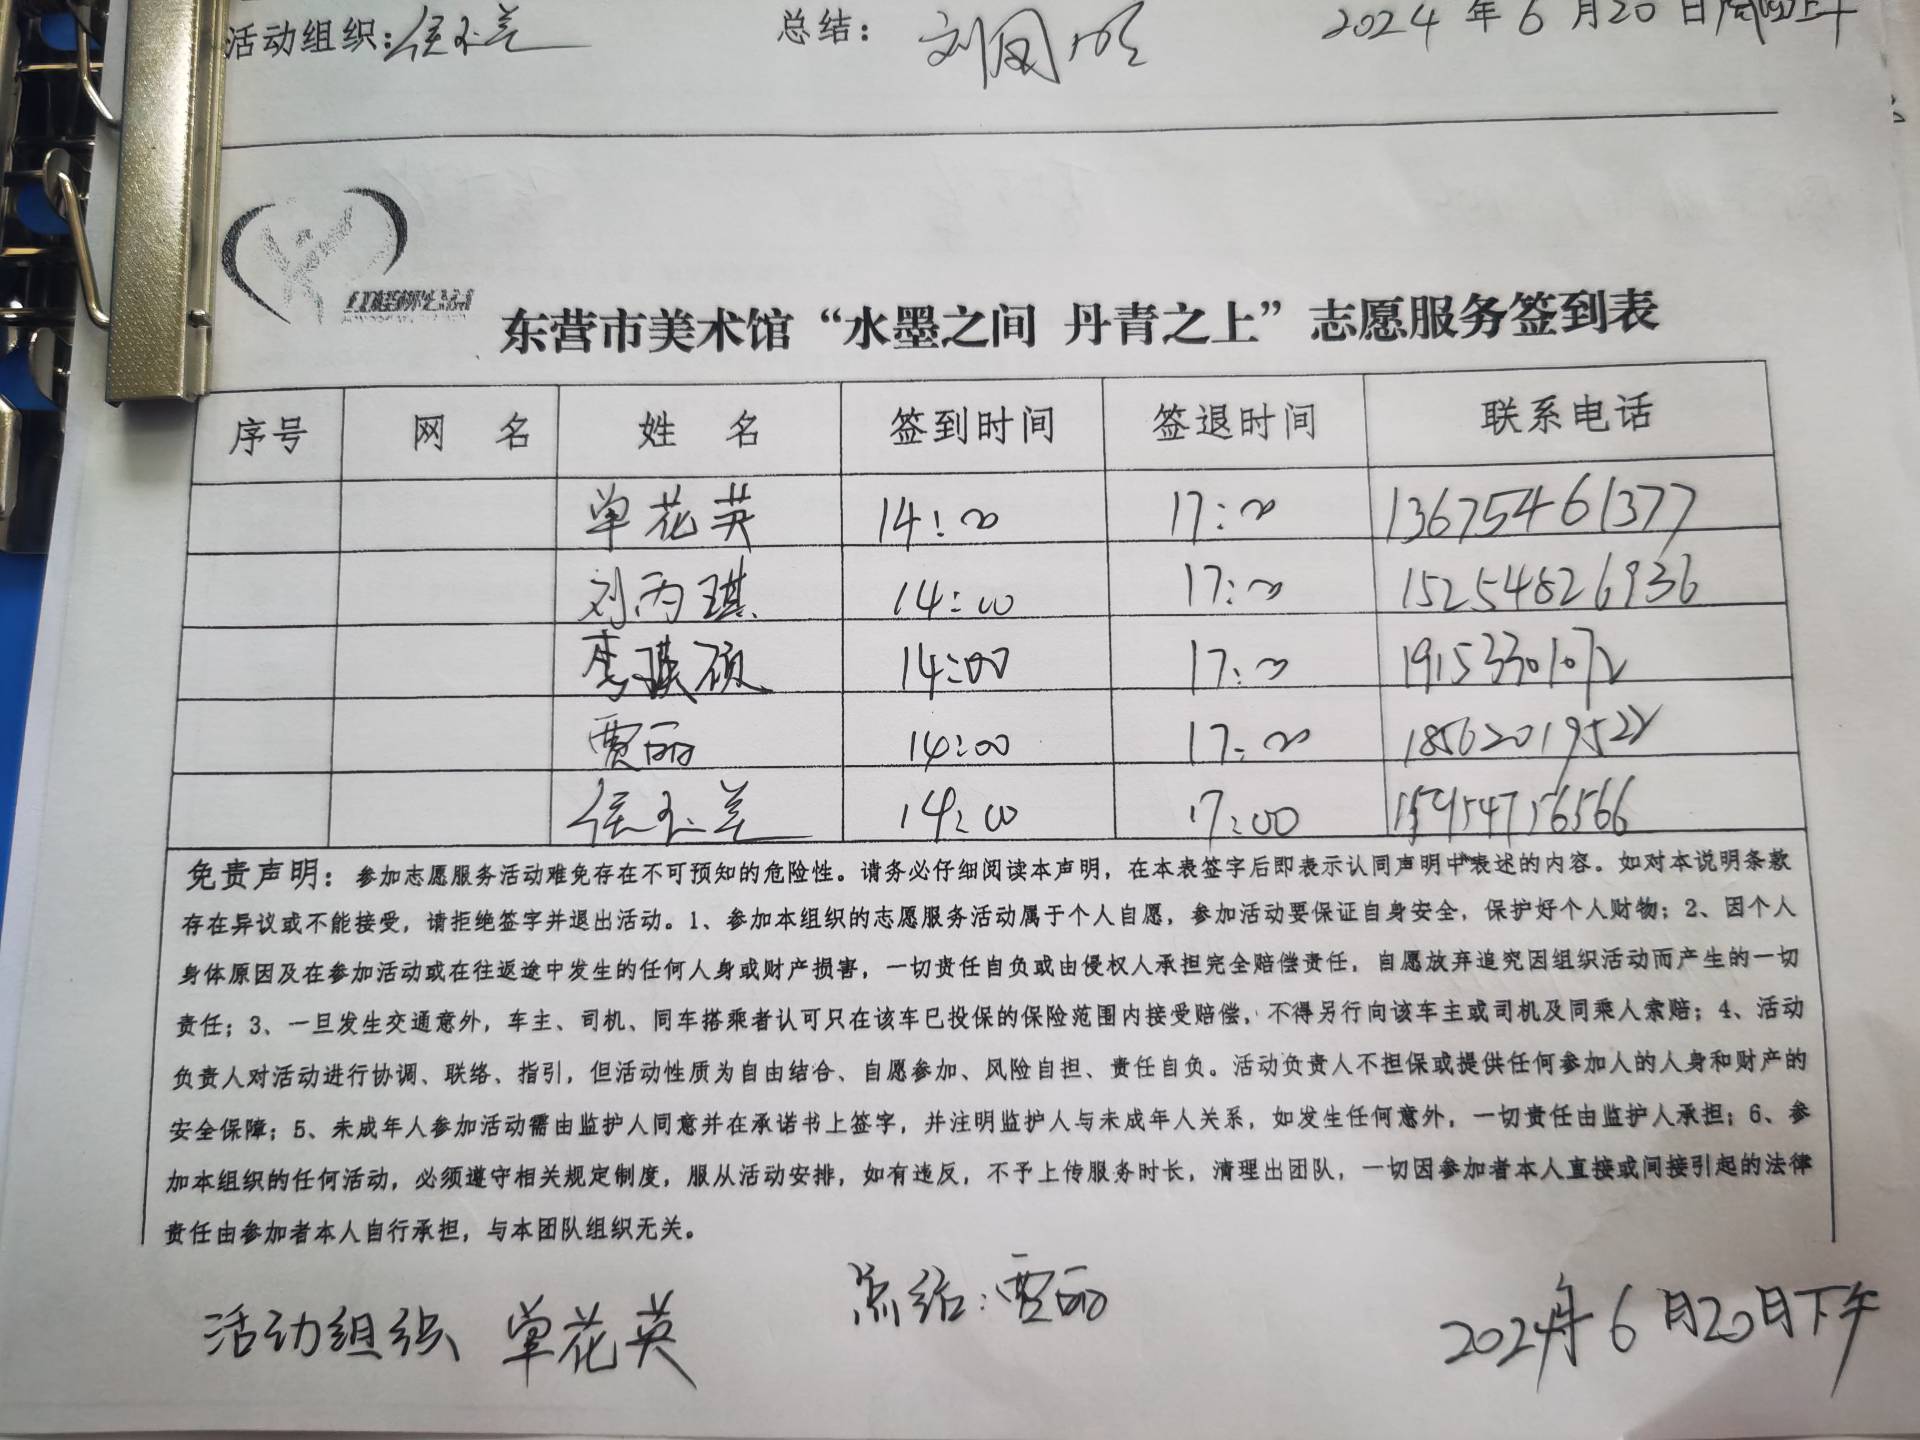 活动组织:侯玉兰 总结: 刘凤明 2024年6月20日周四上午
东营市美术馆“水墨之间 丹青之上”志愿服务签到表
序号 网 名 姓 名 签到时间 签退时间 联系电话
单花英 14:00 17:00 13675461377
刘丙琪 14:00 17:00 15254826936
李琪硕 14:00 17:00 19153301072
贾丽 14:00 17:00 18562019522
侯玉兰 14:00 17:00
免责声明:参加志愿服务活动难免存在不可预知的危险性。请务必仔细阅读本声明，在本表签字后即表示认同声明中表述的内容。如对本说明条款
存在异议或不能接受，请拒绝签字并退出活动。1、参加本组织的志愿服务活动属于个人自愿，参加活动要保证自身安全，保护好个人财物；2、因个人
身体原因及在参加活动或在往返途中发生的任何人身或财产损害，一切责任自负或由侵权人承担完全赔偿责任，自愿放弃追究因组织活动而产生的一切
责任；3、一旦发生交通意外，车主、司机、同车搭乘者认可只在该车已投保的保险范围内接受赔偿，不得另行向该车主或司机及同乘人索赔；4、活动
负责人对活动进行协调、联络、指引，但活动性质为自由结合、自愿参加、风险自担、责任自负。活动负责人不担保或提供任何参加人的人身和财产的
安全保障；5、未成年人参加活动需由监护人同意并在承诺书上签字，并注明监护人与未成年人关系，如发生任何意外，一切责任由监护人承担；6、参
加本组织的任何活动，必须遵守相关规定制度，服从活动安排，如有违反，不予上传服务时长，清理出团队，一切因参加者本人直接或间接引起的法律
责任由参加者本人自行承担，与本团队组织无关。
活动组织 单花英 总结:贾丽 2024年6月20日下午